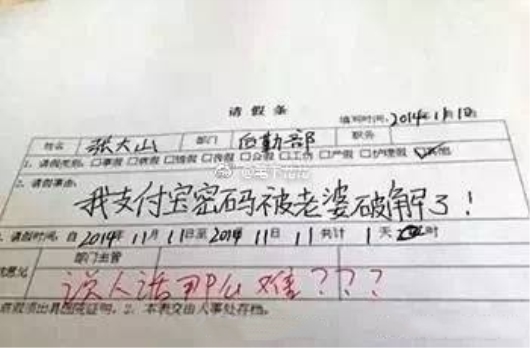 请假条
填写时间：2014年11月10日
姓名 张大山 部门 后勤部 职务
1、请假类别：□事假 □病假 □婚假 □丧假 □公假 □工伤 □产假 □护理假 ☑其他
2、请假事由：
我支付宝密码被老婆破解了！
请假时间：自2014年11月11日至2014年11月11共计1天 时
部门主管
说人话那么难？？？
证明，2、本表交由人事处存档。